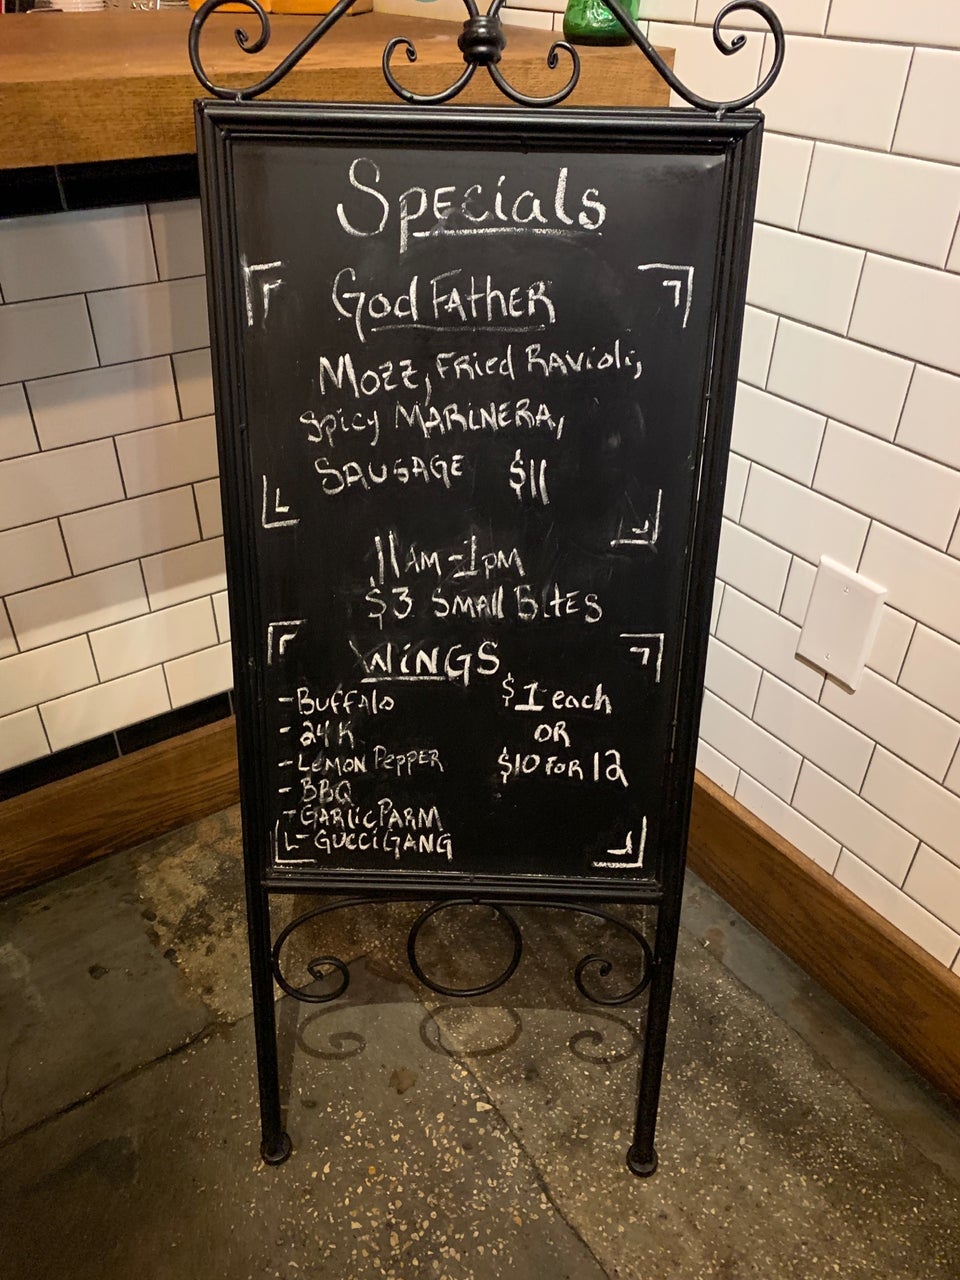 Specials
God Father
Mozz, Fried Ravioli,
Spicy Marinera,
Sausage $11
11AM-1PM
$3 Small Bites
Wings
-Buffalo $1 each
-24K OR
-Lemon Pepper $10 for 12
-BBQ
-Garlic Parm
-Gucci Gang